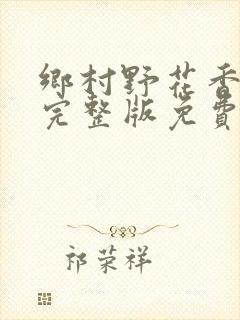 鄉村野花香
完整版免費
祁荣祥